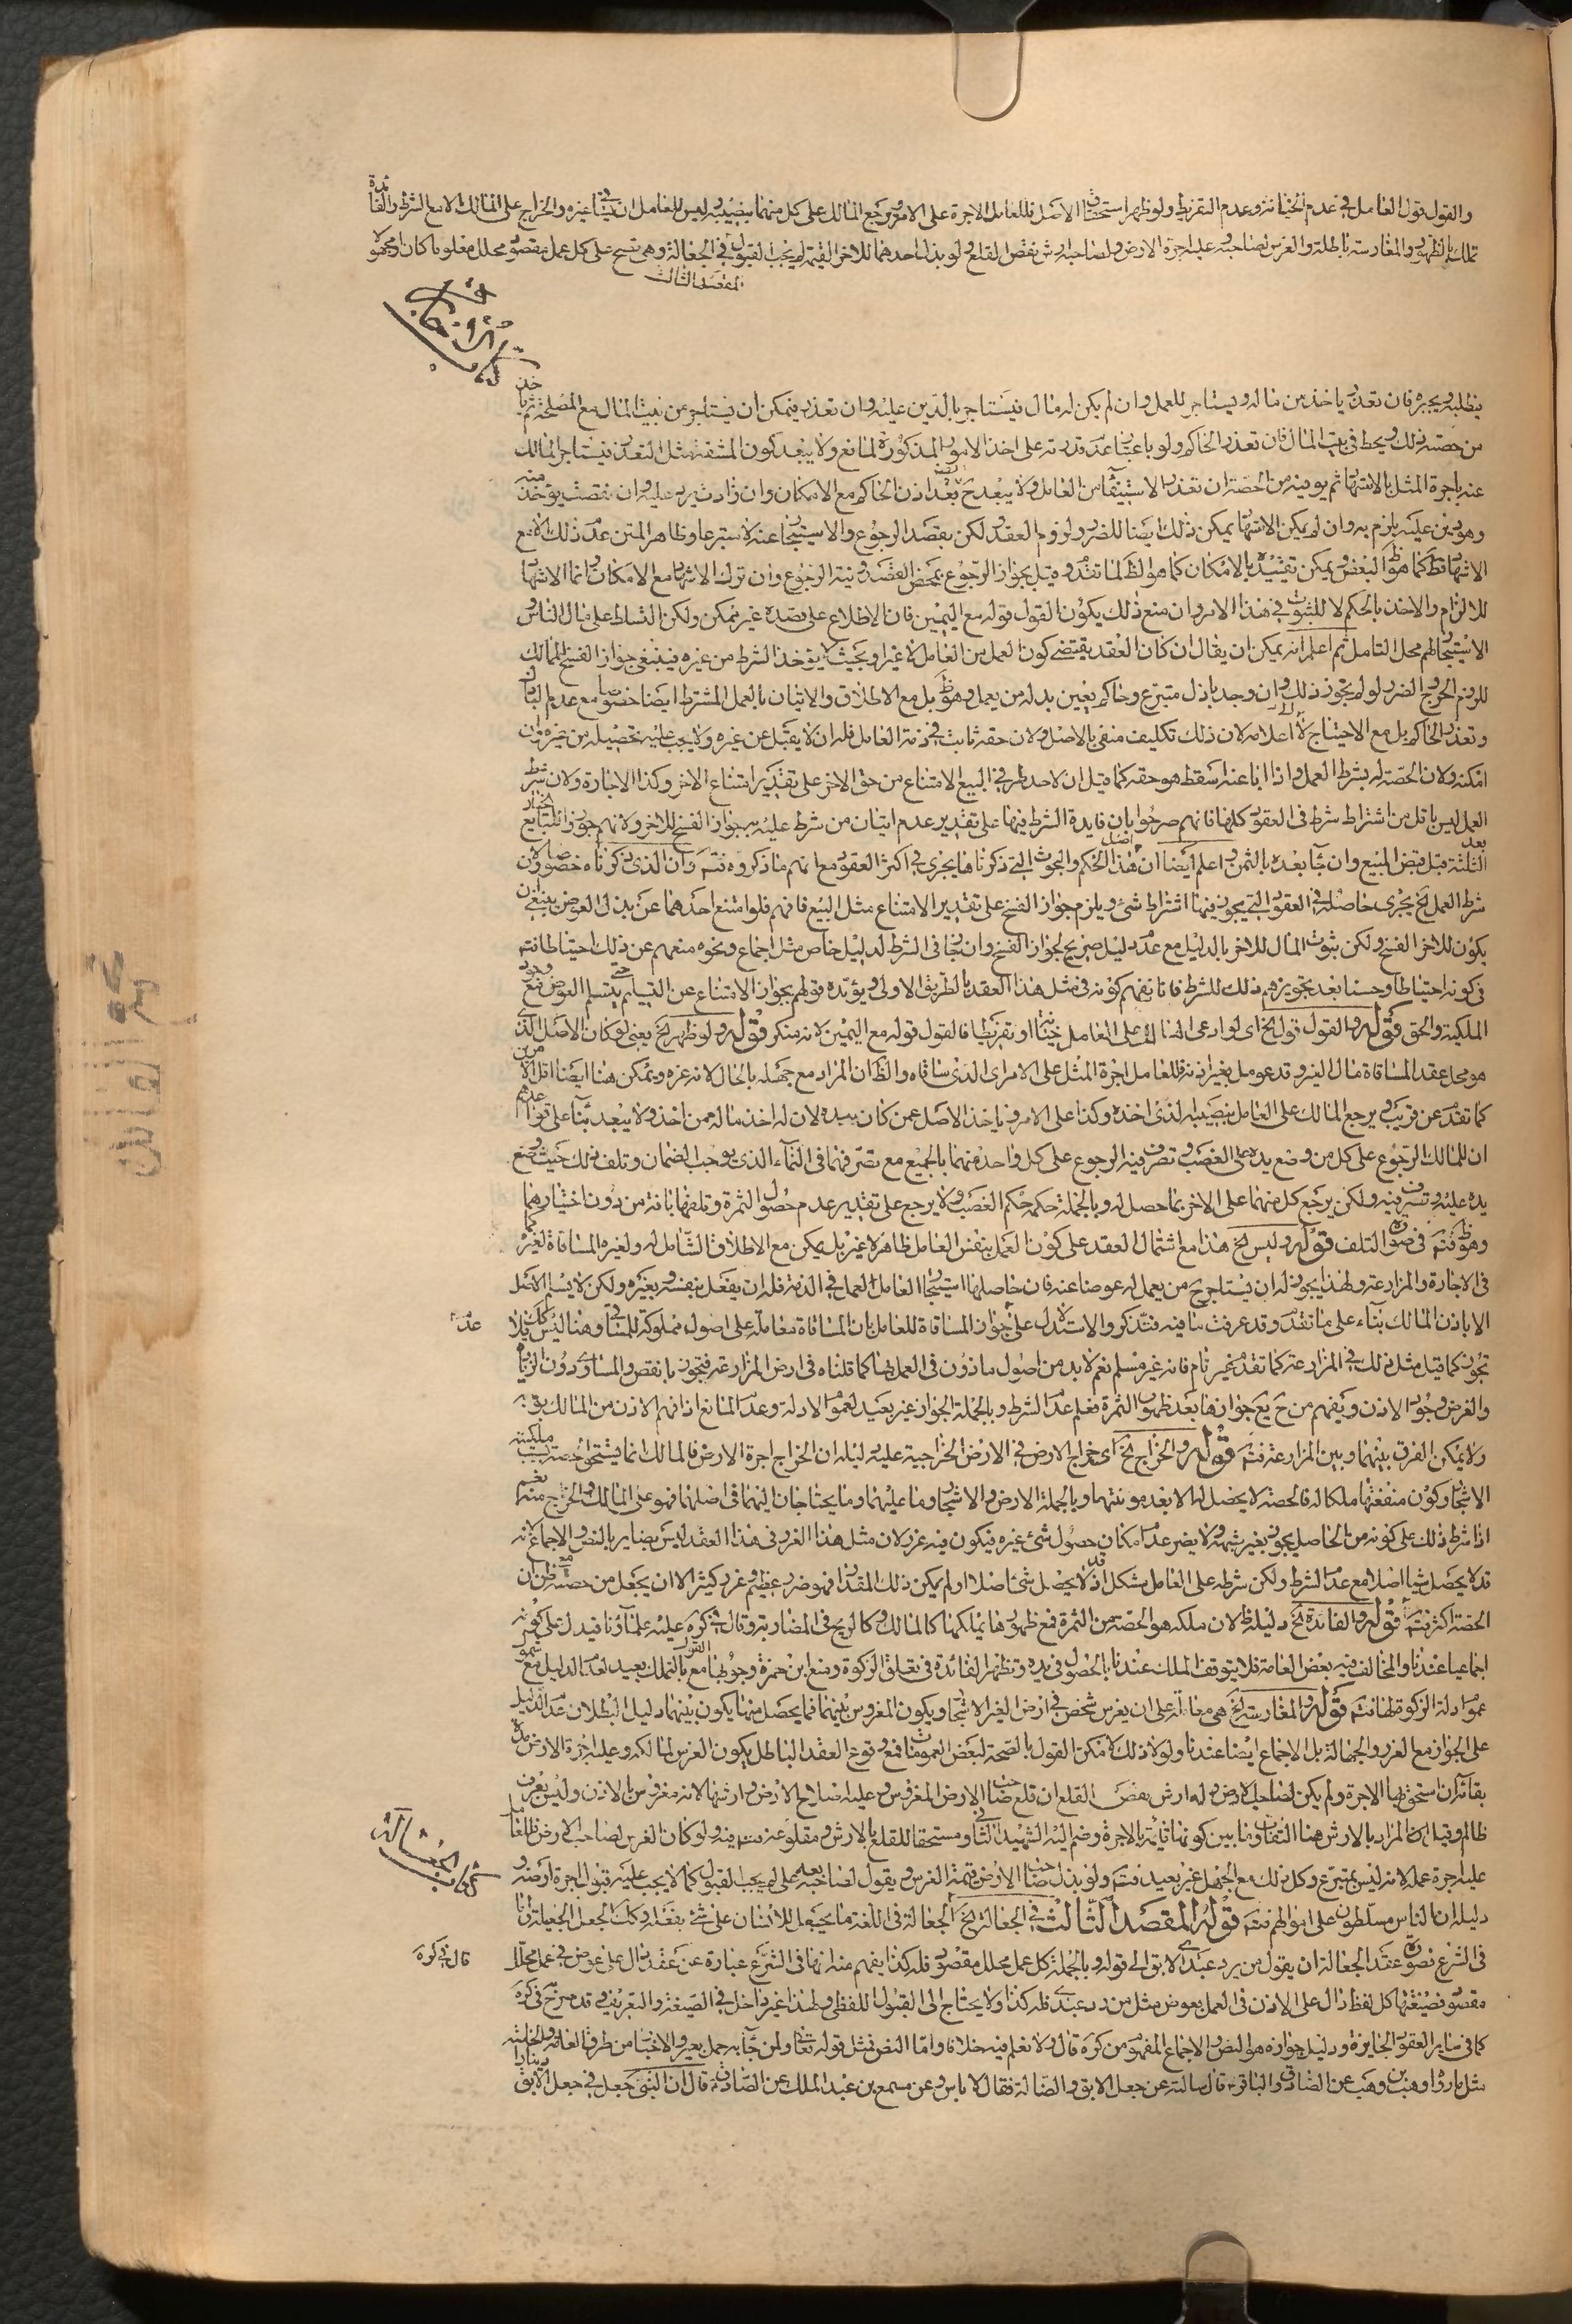 والقول قول العامل في عدم الخيانة وعدم التفريط ولو ظهر استحقاق الاصل فللعامل الاجرة على الامر ويرجع المالك على كل منهما بنصيبه وليس للعامل ان يساقي غيره والخراج على المالك الا مع الشرط والفائدة
تملك بالظهور والمغارسة باطلة والغرس لصاحبه وعليه اجرة الارض ولصاحبه ارش نقص القلع ولو بذل احدهما للاخر القيمة لم يجب القبول في الجعالة وهي تصح على كل عمل مقصود محلل معلوما كان او مجهولا
المقصد الثالث
يطلبه ويجبره فان تعذر ياخذ من ماله ويستاجر للعمل وان لم يكن له مال فيستاجر بالدين عليه وان تعذر فيمكن ان يستاجر من بيت المال مع المصلحة ثم ياخذ
من حصته ذلك ويحط في بيت المال فان تعذر الحاكم ولو باعتبار عدم قدرته على اخذ الامور المذكورة لمانع ولا يبعد كون المشقة مثل التعذر فيستاجر المالك
عنه باجرة المثل بالاشهاد ثم يوفيه من الحصة ان تعذر الاستيفاء من العامل ولا يبعد ح بعد اذن الحاكم مع الامكان وان زادت يرد عليه وان نقصت يوخذ منه
وهو دين عليه يلزم به وان لم يمكن الاشهاد يمكن ذلك ايضا للضرر ولزوم العقد لكن بقصد الرجوع والاستيجار عنه لا متبرعا وظاهر المتن عدم ذلك الا مع
الاشهاد فقط كما هو البعض ويمكن تقييده بالامكان كما هو الظ لما تقدم وقيل بجواز الرجوع بمحض القصد ونية الرجوع وان ترك الاشهاد مع الامكان وانما الاشهاد
للالزام والاخذ بالحكم لا للثبوت في هذا الامر وان منع ذلك يكون القول قوله مع اليمين فان الاطلاع على قصده غير ممكن ولكن التسلط على مال الناس
والاستيجار لهم محل التامل ثم اعلم انه يمكن ان يقال ان كان العقد يقتضي كون العمل من العامل لا غير او بحيث لا يؤخذ الشرط من غيره فينبغي جواز الفسخ للمالك
للزوم الحرج والضرر لو لم يجوز ذلك وان وجد باذل متبرع وحاكم يعين بدله من يعمل وهو ظ بل مع الاطلاق والاتيان بالعمل المشترط ايضا خصوصا مع عدم الباذل
وتعذر الحاكم بل مع الاحتياج لا اعلامه لان ذلك تكليف منفي بالاصل ولان حقه ثابت في ذمة العامل فله ان لا يقبل عن غيره ولا يجب عليه تحصيله من غيره وان
امكنه ولان الحصة له بشرط العمل واذا ابا عنه اسقط هو حقه كما قيل ان لاحد طرفي البيع الامتناع من حق الاخر على تقدير امتناع الاخر وكذا الاجارة ولان شرط
العمل ليس باقل من اشتراط شرط في العقود كلها فانهم صرحوا بان فايدة الشرط فيها على تقدير عدم اتيان من شرط عليه به جواز الفسخ للاخر ولانهم جوزوا للبايع الخيار
بعد الثلثة قبل قبض المبيع وان جاء بعده بالثمن واعلم ايضا ان اصل هذا الحكم والبحوث التي ذكرناها يجري في اكثر العقود مع انهم ما ذكروه فتم وان الذي ذكرناه خصوصا كون
شرط العمل الخ يجري حاصله في العقود التي يجوز فيها اشتراط شئ ويلزم جواز الفسخ على تقدير الامتناع مثل البيع فافهم فلو امتنع احدهما عن بذل العوض ينبغي ان
يكون للاخر الفسخ ولكن ثبوت المال للاخر بالدليل مع عدم دليل صريح لجواز الفسخ وان جاز في الشرط لدليل خاص مثل اجماع ونحوه منعهم عن ذلك احتياطا فتم
في كونه احتياطا وحسنا بعد تجويزهم ذلك للشرط فانا نفهم كونه في مثل هذا العقد بالطريق الاولى ويؤيده قولهم بجواز الامتناع عن التسليم حتى يتسلم العوض مع وجود
الملكية والحق قوله والقول قوله الخ اي لو ادعى المالك على العامل خيانة او تفريطا فالقول قوله مع اليمين لانه منكر قوله ولو ظهر الخ يعني لو كان الاصل الذي
هو محل عقد المساقاة مال الغير وقد عومل بغير اذنه فللعامل اجرة المثل على الامر اي الذي ساقاه والظ ان المراد مع جهله بالحال لانه غره ويمكن هنا ايضا اقل الامرين
كما تقدم عن قريب ويرجع المالك على العامل بنصيبه الذي اخذه وكذا على الامر وياخذ الاصل عمن كان بيده لان له اخذ ماله ممن اخذ ولا يبعد بناء على قواعدهم
ان للمالك الرجوع على كل من وضع يده على الغصب وتصرف فيه الرجوع على كل واحد منهما بالجميع مع تصرفهما في النماء الذي يوجب الضمان وتلف ذلك حيث وضع
يده عليه وتصرف فيه ولكن يرجع كل منهما على الاخر بما حصل له وبالجملة حكمه حكم الغصب ولا يرجع على تقدير عدم حصول الثمرة وتلفها بافة من دون اختيارهما
وهو ظ فتم في صورة التلف قوله وليس الخ هذا مع اشتمال العقد على كون العمل بنفس العامل ظاهر لا غير بل يمكن مع الاطلاق الشامل له ولغيره المساقاة لغيره كما
في الاجارة والمزارعة ولهذا يجوز له ان يستاجر ح من يعمل له عوضا عنه فان حاصلها استيجار العامل للعمل في الذمة فله ان يفعل بنفسه وبغيره ولكن لا يسلم الاصل
الا باذن المالك بناء على ما تقدم وقد عرفت ما فيه فتذكر والاستدلال على جواز المساقاة للعامل بان المساقاة معاملة على اصول مملوكة للمساقي وهنا ليس كك فلا
تجوز كما قيل مثل ذلك في المزارعة كما تقدم غير تام فانه غير مسلم نعم لا بد من اصول ماذون في العمل بها كما قلناه في ارض المزارعة فتجوز بانقص والمساوي دون الزيادة
والغرض وجود الاذن ويفهم من ح يع جوازها بعد ظهور الثمرة فعلم عدم الشرط وبالجملة الجواز غير بعيد لعموم الادلة وعدم المانع اذا فهم الاذن من المالك بوجه
ولا يمكن الفرق بينهما وبين المزارعة فتم قوله والخراج الخ اي خراج الارض في الارض الخراجية عليه دليله ان الخراج اجرة الارض فالمالك انما يستحق الحصة بسبب ملكيته
الاشجار وكون منفعتها ملكا له فالحصة لا يحصل لها الا بعد مونتها وبالجملة الارض والاشجار وما عليهما وما يحتاجان اليهما في اصلهما فهو على المالك والخراج منها نعم
اذا شرط ذلك على كونه من الحاصل يجوز بغير شبهة ولا يضر عدم امكان حصول شئ غيره فيكون فيه غرر لان مثل هذا الغرر في هذا العقد ليس بضاير بالنص والاجماع لانه
قد لا يحصل شيئا اصلا مع عدم الشرط ولكن شرطه على العامل مشكل اذ قد لا يحصل شئ اصلا او لم يكن ذلك المقدار فهو ضرر عظيم وغرر كثير الا ان يجعل من حصته مع ظن ان
الحصة اكثر فتم قوله والفائدة الخ دليله ظ لان ملكه هو الحصة من الثمرة فمع ظهورها يملكها كالمالك وكالربح في المضاربة وقال في كره عليه علمائنا فيدل على كونه
اجماعيا عندنا والمخالف فيه بعض العامة فلا يتوقف الملك عندنا بالحصول في يده وتظهر الفائدة في تعلق الزكوة ومنع ابن حمزة وجوبها مع القول بالتملك بعيد لعدم الدليل مع شمول
عموم ادلة الزكوة لها فتم قوله والمغارسة الخ هي معاملة على ان يغرس شخص في ارض الغير الاشجار ويكون المغروس بينهما فما يحصل منها يكون بينهما دليل البطلان عدم الدليل
على الجواز مع الغرر والجهالة بل الاجماع ايضا عندنا ولولا ذلك لامكن القول بالصحة لبعض العمومات فمع وقوع العقد الباطل يكون الغرس لمالكه وعليه اجرة الارض مدة
بقائه ان استحق بها الاجرة ولم يكن لصاحب الارض وله ارش نقص القلع ان قلع صاحب الارض المغروس وعليه اصلاح الارض وارشها لانه مغروس بالاذن وليس بعرق
ظالم وقيل ان المراد بالارش هنا التفاوت ما بين كونها قائمة بالاجرة وضم اليه الشهيد الثاني ومستحقا للقلع بالارش ومقلوعة فتم فيه ولو كان الغرس لصاحب الارض فللعامل
عليه اجرة عمله لانه ليس بمتبرع وكل ذلك مع الجهل غير بعيد فتم ولو بذل صاحب الارض قيمة الغرس ويقول لصاحبه بعه على لم يجب القبول كما لا يجب عليه قبول اجرة ارضه و
دليله ان الناس مسلطون على اموالهم فتم قوله المقصد الثالث في الجعالة الخ الجعالة في اللغة ما يجعل للانسان على شئ يفعله وكك الجعل والجعيلة واما
في الشرع فصورة عقد الجعالة ان يقول من يرد عبدي الابق الى قوله وبالجملة كل عمل محلل مقصود فله كذا يفهم منه انها في الشرع عبارة عن عقد دال على عوض في عمل محلل
قال في كره
مقصود فصيغتها كل لفظ دال على الاذن في العمل بعوض مثل من رد عبدي فله كذا ولا يحتاج الى القبول اللفظي ولهذا غير داخل في الصيغة والتعريف وقد صرح في كره
كما في ساير العقود الجايزة ودليل جوازه هو النص والاجماع المفهوم من كره قال ولا نعلم فيه خلافا واما النص فمثل قوله تعالى ولمن جاء به حمل بعير والاخبار من طرق العامة والخاصة
مثل ما رواه وهب بن وهب عن الصادق والباقر ع قال سالته عن جعل الابق والضالة فقال لا باس وعن مسمع بن عبد الملك عن الصادق ع قال ان النبي جعل في جعل الابق دينارا